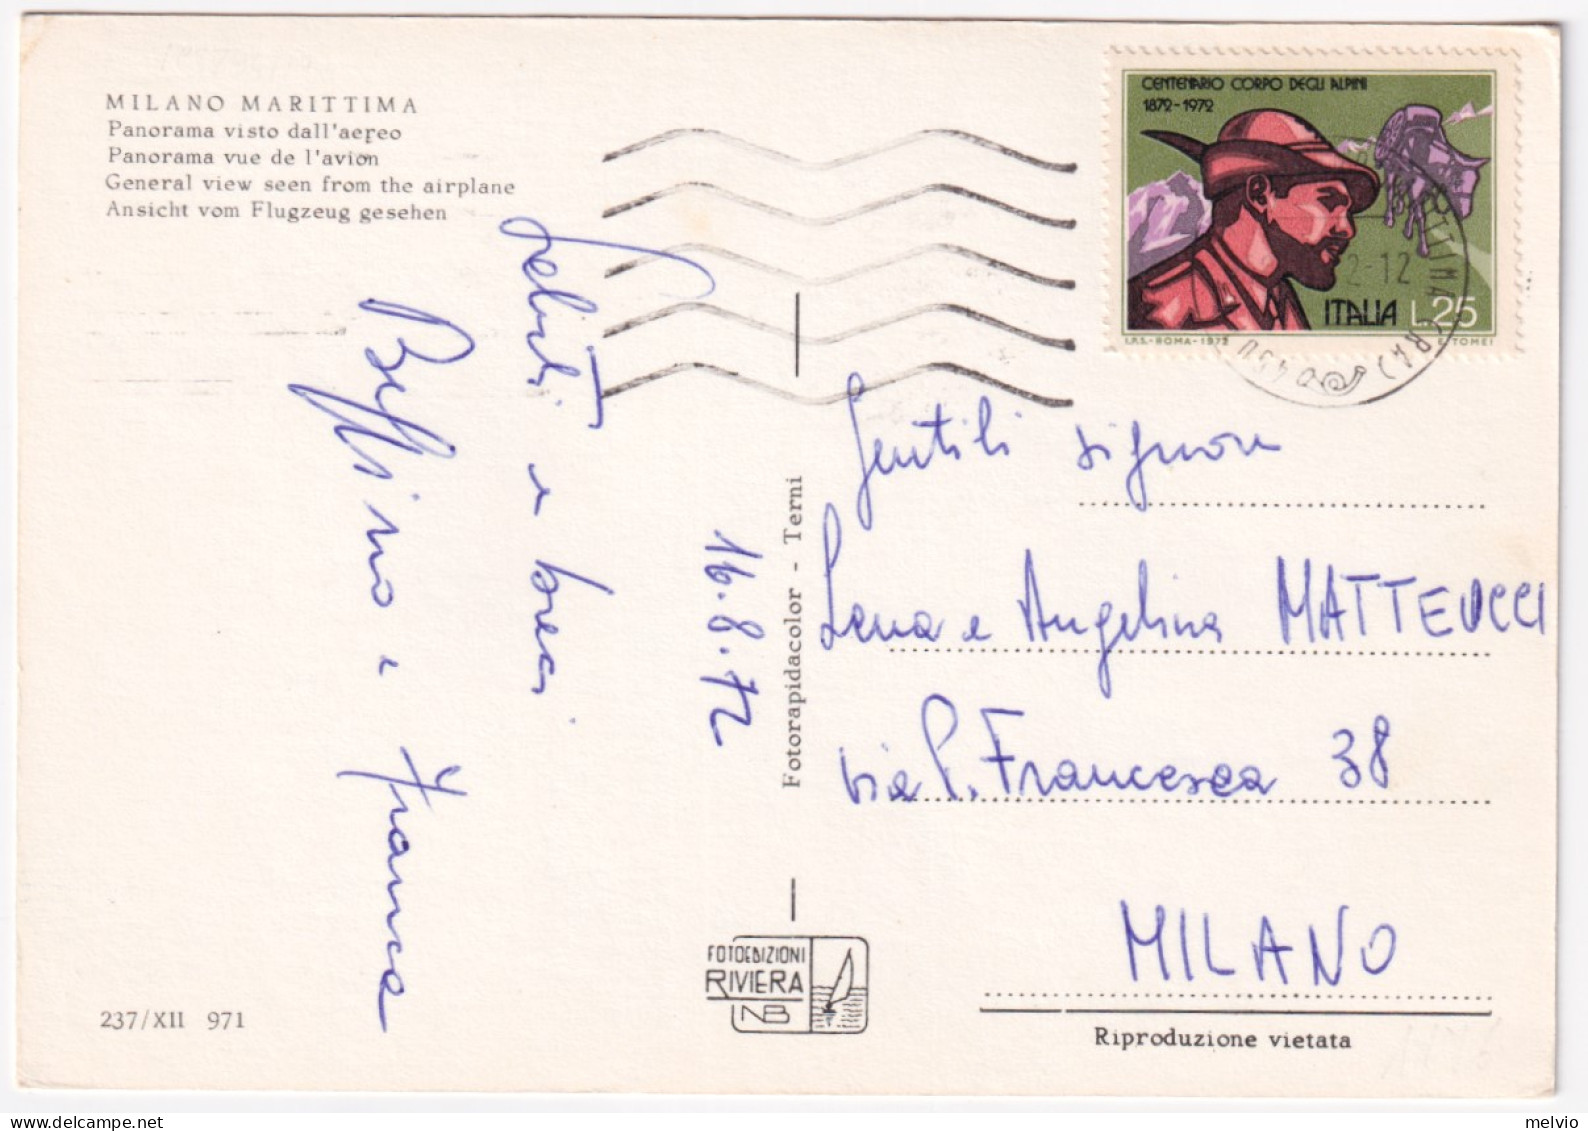 MILANO MARITTIMA
Panorama visto dall'aereo
Panorama vue de l'avion
General view seen from the airplane
Ansicht vom Flugzeug gesehen
CENTENARIO CORPO DEGLI ALPINI
1872-1972
ITALIA L.25
I.P.S.-ROMA-1972 E. TOMEI
saluti e baci
Beffino e Franca
16.8.72
Fotorapidacolor - Terni
Gentili signore
Lena e Angelina MATTEUCCI
via P. Francesca 38
MILANO
FOTOEDIZIONI
RIVIERA
NB
237/XII 971
Riproduzione vietata
melvio